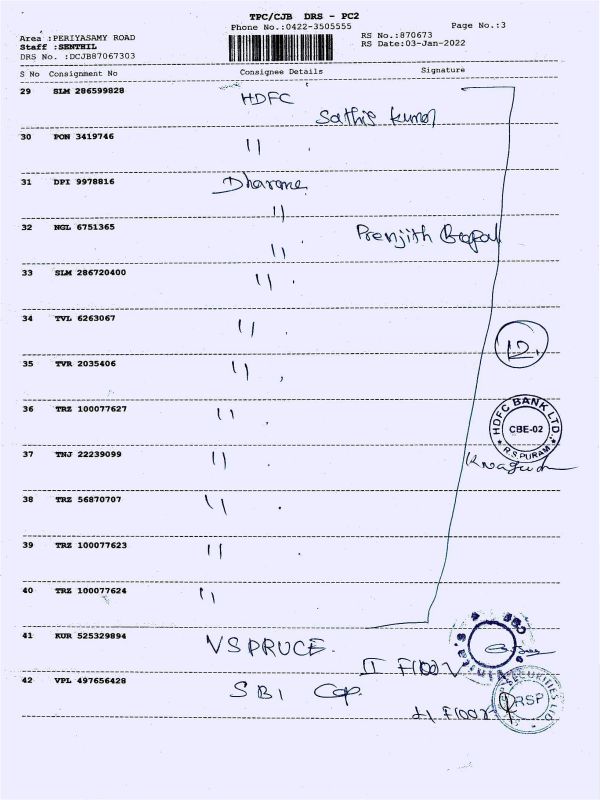 TPC/CJB DRS - PC2
Phone No.:0422-3505555
Page No.:3
Area :PERIYASAMY ROAD
Staff :SENTHIL
DRS No. :DCJB87067303
RS No.:870673
RS Date:03-Jan-2022
S No Consignment No Consignee Details Signature
29 SLM 286599828 HDFC
Sathis kumar
30 PON 3419746 11
31 DPI 9978816 Dharane
11
32 NGL 6751365 Prenjith
11
33 SLM 286720400 11
34 TVL 6263067 11
12.
35 TVR 2035406 11
36 TRZ 100077627 11
HDFC BANK LTD.
CBE-02
R.S.PURAM
37 TNJ 22239099 11
38 TRZ 56870707 11
39 TRZ 100077623 11
40 TRZ 100077624 11
41 KUR 525329894 VSPRUCE
II Floor
42 VPL 497656428 SBI Cap
RSP
Floor